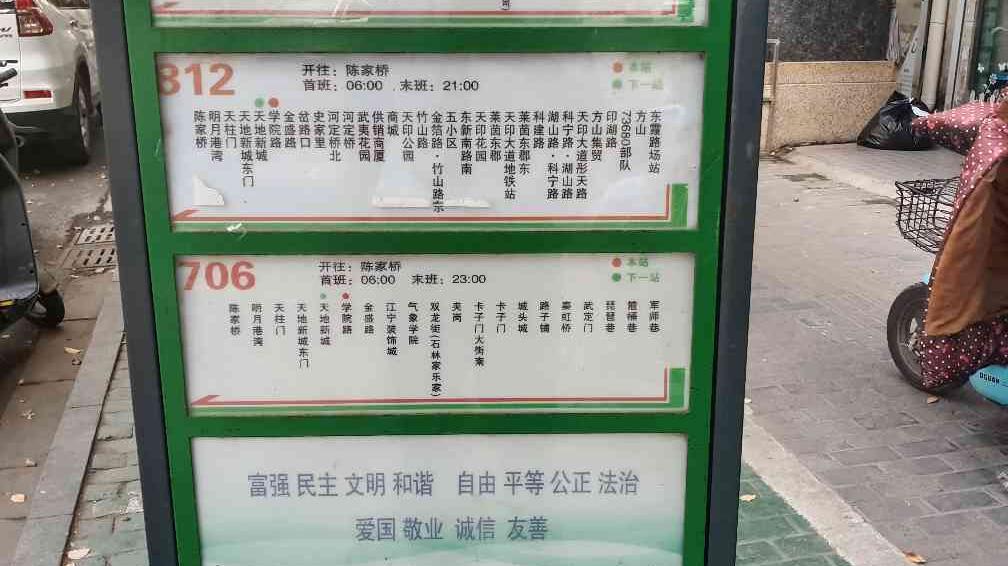 812
开往：陈家桥
首班：06:00 末班：21:00
本站
下一站
陈家桥
明月港湾
天柱门
天地新城东门
天地新城
学院路
金盛路
岔路口
史家里
河定桥北
河定桥
武夷花园
供销商厦
商城
天印公园
竹山路
金箔路·竹山路东
五小区
东新南路南
天印花园
莱茵东郡
天印大道地铁站
莱茵东郡东
科建路
湖山路·科宁路
科宁路·湖山路
天印大道彤天路
方山集贸
印湖路
73680部队
方山
东霞路场站
706
开往：陈家桥
首班：06:00 末班：23:00
本站
下一站
陈家桥
明月港湾
天柱门
天地新城东门
天地新城
学院路
金盛路
江宁装饰城
气象学院
双龙街(石林家乐家)
夹岗
卡子门大街南
卡子门
城头城
路子铺
秦虹桥
武定门
琵琶巷
箍桶巷
军师巷
富强 民主 文明 和谐 自由 平等 公正 法治
爱国 敬业 诚信 友善